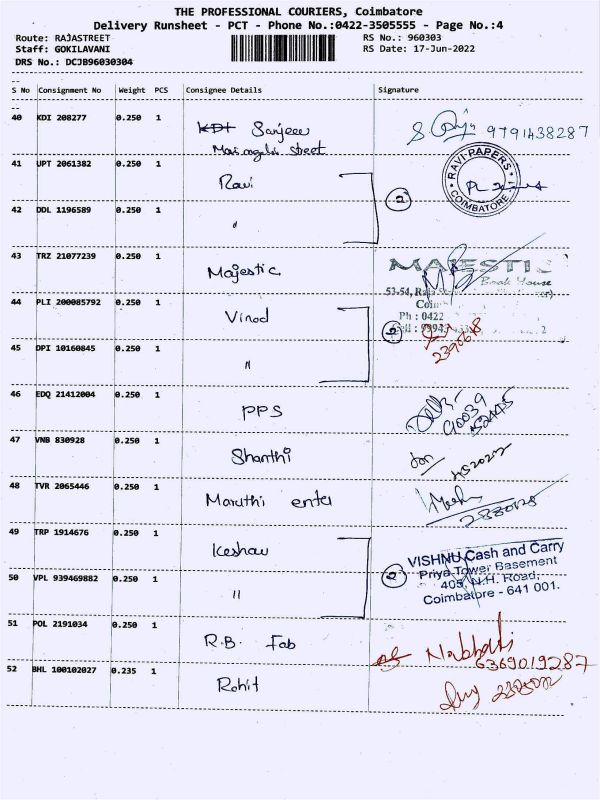 THE PROFESSIONAL COURIERS, Coimbatore
Delivery Runsheet - PCT - Phone No.:0422-3505555 - Page No.:4
Route: RAJASTREET RS No.: 960303
Staff: GOKILAVANI RS Date: 17-Jun-2022
DRS No.: DCJB96030304
S No Consignment No Weight PCS Consignee Details Signature
40 KDI 208277 0.250 1 Sanjeev 9791438287
street
41 UPT 2061382 0.250 1 Ravi 2 RAVI PAPERS COIMBATORE
42 DDL 1196589 0.250 1 "
43 TRZ 21077239 0.250 1 Majestic MAJESTIC
Book House
53-54,
44 PLI 200085792 0.250 1 Vinod
Ph : 0422
45 DPI 10160845 0.250 1 " 2 2390618
46 EDQ 21412004 0.250 1 PPS
47 VNB 830928 0.250 1 Shanthi
48 TVR 2065446 0.250 1 Maruthi enter
49 TRP 1914676 0.250 1 Keshav VISHNU Cash and Carry
Priya Tower Basement
50 VPL 939469882 0.250 1 " 2 405, N.H. Road,
Coimbatore - 641 001.
51 POL 2191034 0.250 1 R.B. Fab 6369019287
52 BHL 100102027 0.235 1 Rohit